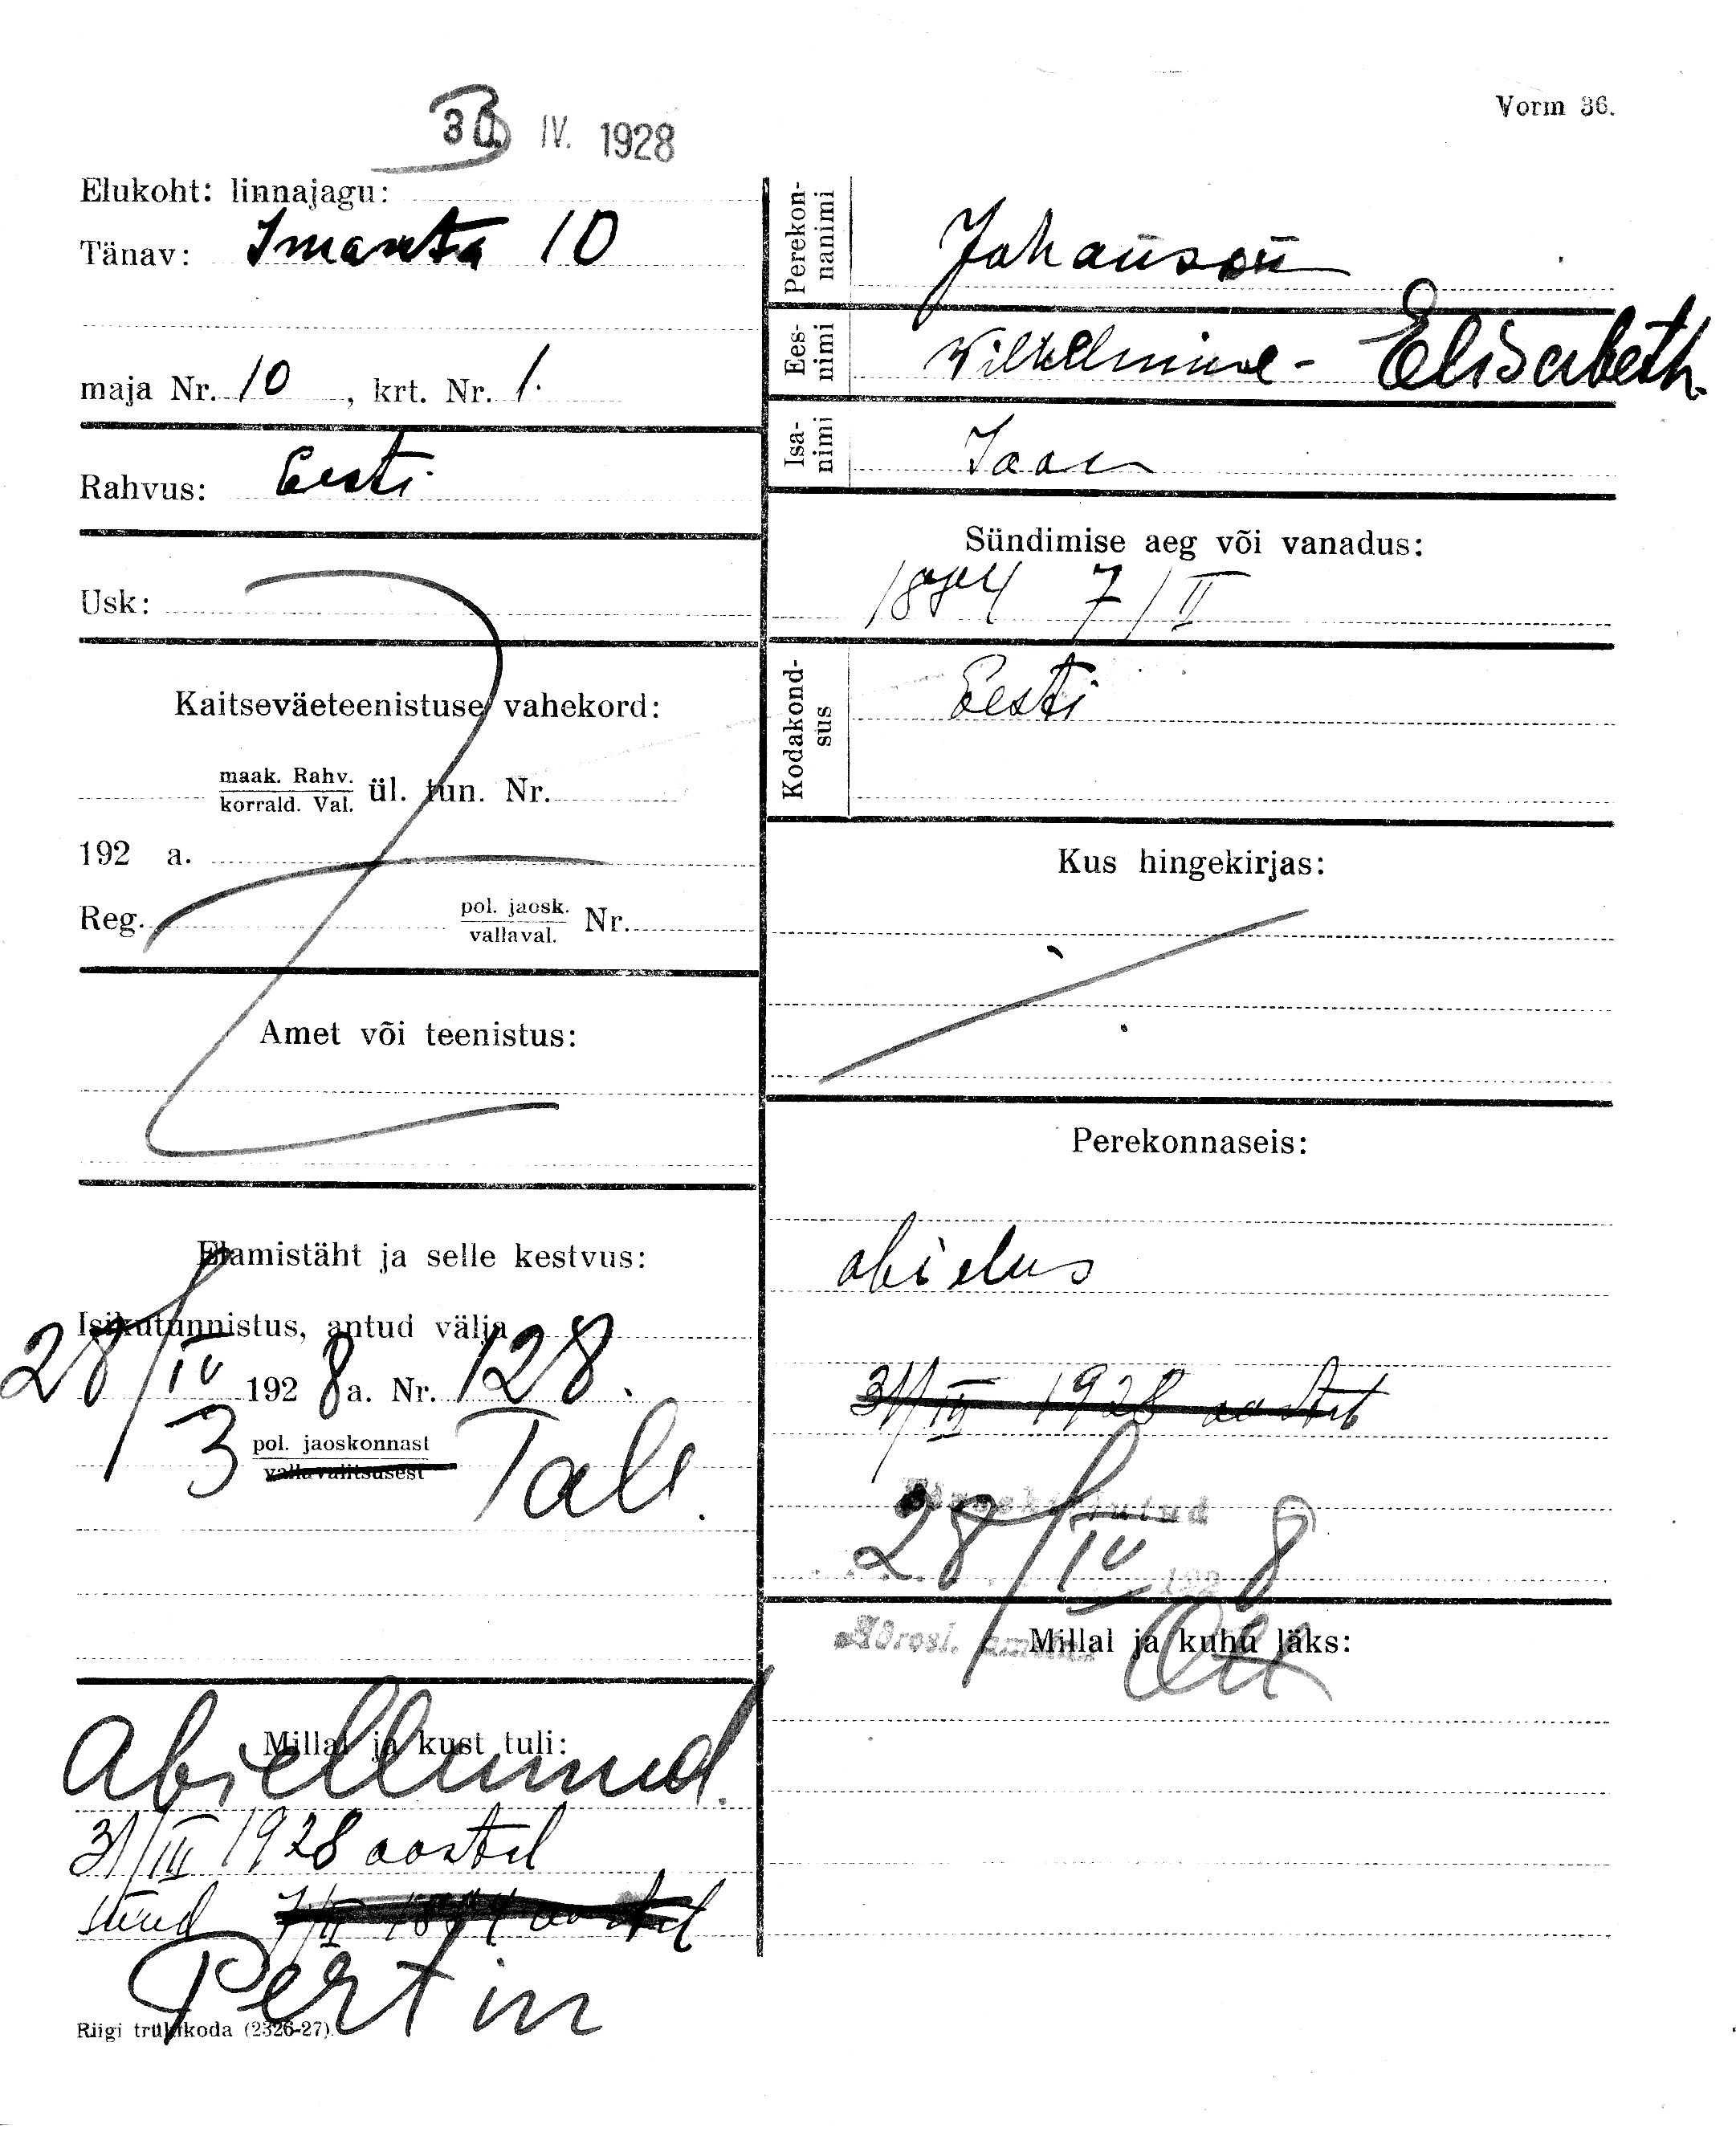 Vorm 36.
30. IV. 1928
Elukoht: linnajagu:
Tänav: Imanta 10
maja Nr. 10, krt. Nr. 1.
Rahvus: Eesti
Usk:
Kaitseväeteenistuse vahekord:
maak. Rahv.
korrald. Val. ül. tun. Nr.
192 a.
Reg. pol. jaosk.
vallaval. Nr.
Amet või teenistus:
Elamistäht ja selle kestvus:
Isikutunnistus, antud välja
28/IV 1928 a. Nr. 128.
3 pol. jaoskonnast Tall.
vallavalitsusest
Millal ja kust tuli:
Abiellunud.
31/III 1928 aastal
sünd 7/II
Pertin
Riigi trükikoda (2326-27).
Perekon-
nanimi Johanson
Ees-
nimi Wilhelmine- Elisabeth.
Isa-
nimi Jaan
Sündimise aeg või vanadus:
7/II
Kodakond-
sus Eesti
Kus hingekirjas:
Perekonnaseis:
abielus
31/III 1928 aastal
28/IV 1928
Millal ja kuhu läks: